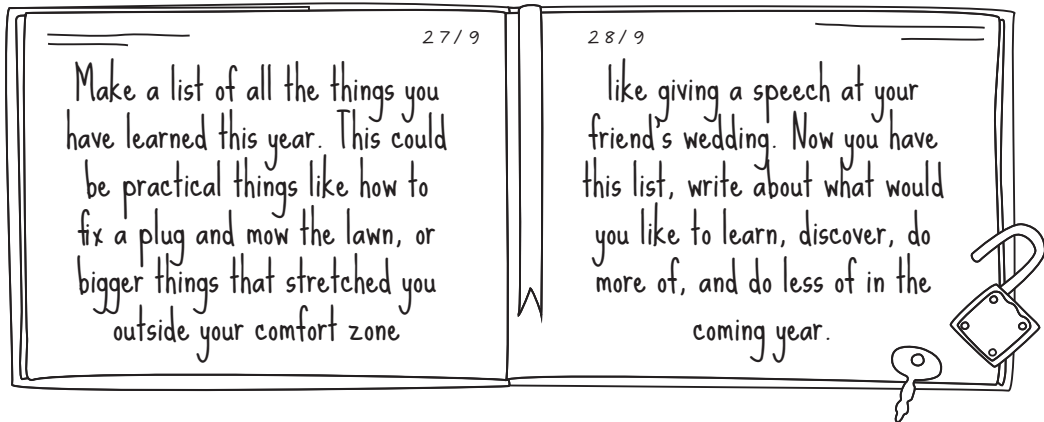 27/9
Make a list of all the things you
have learned this year. This could
be practical things like how to
fix a plug and mow the lawn, or
bigger things that stretched you
outside your comfort zone
28/9
like giving a speech at your
friend's wedding. Now you have
this list, write about what would
you like to learn, discover, do
more of, and do less of in the
coming year.